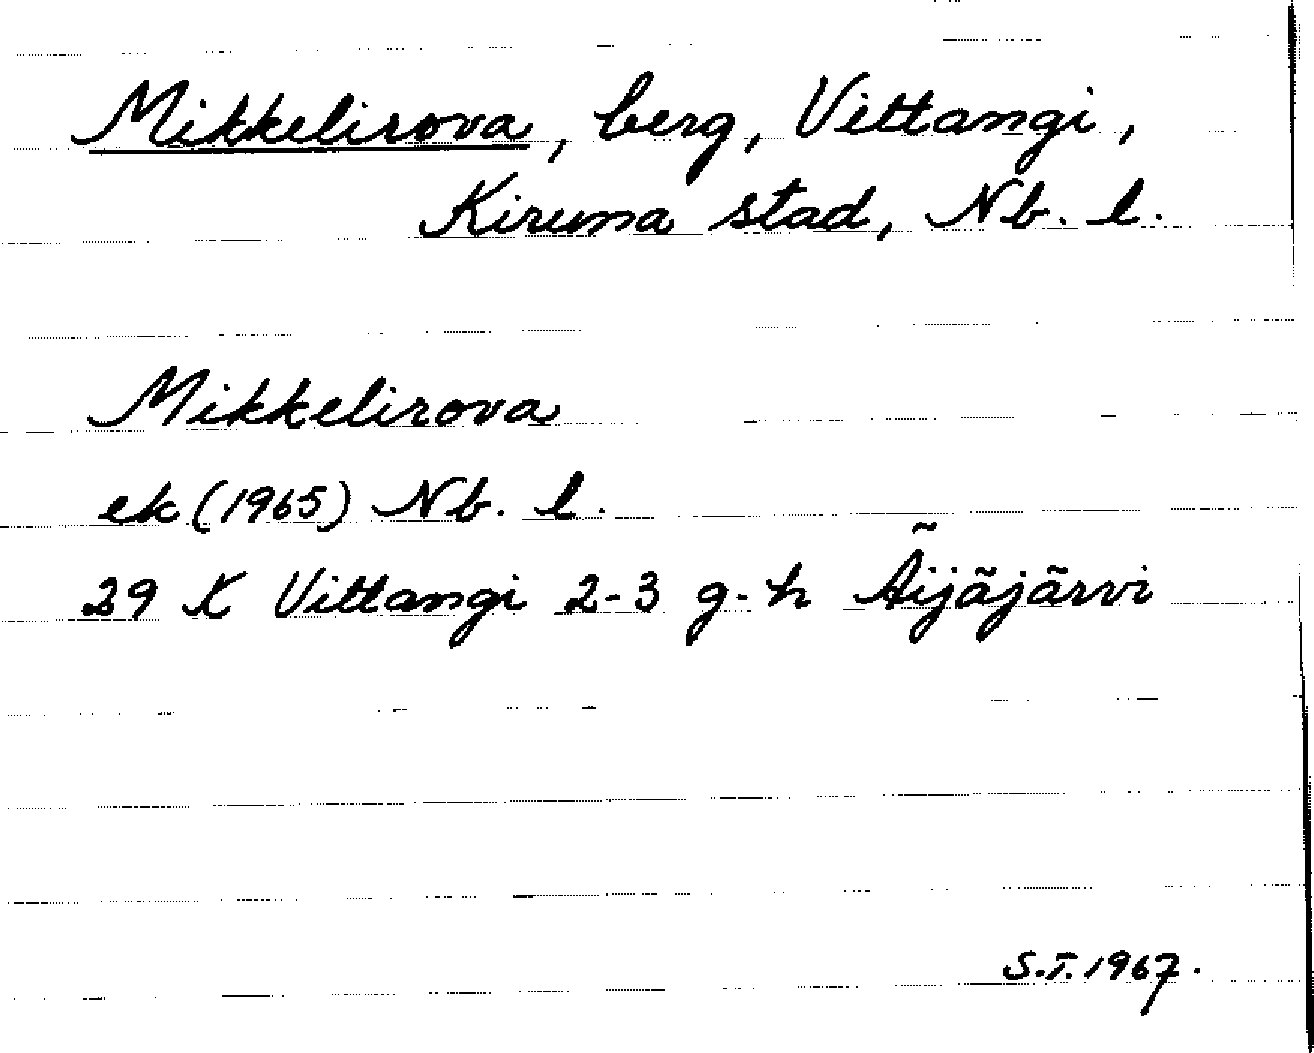 Mikkelirova, berg, Vittangi,
Kiruna stad, Nb. l.
Mikkelirova
ek (1965) Nb. l.
29 K Vittangi 2-3 g-h Äijäjärvi
S.T. 1967.